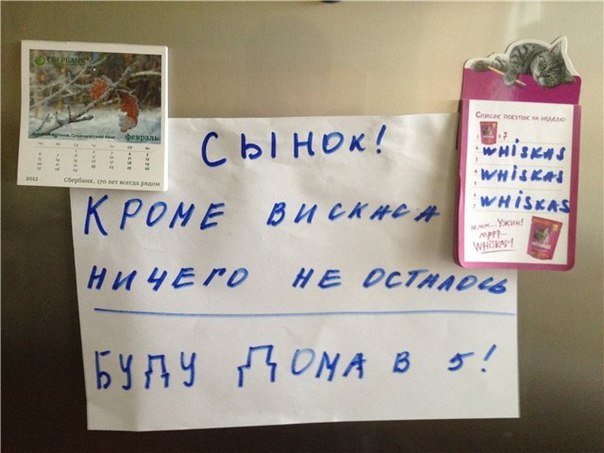 СБЕРБАНК
февраль
2012 Сбербанк. 170 лет всегда рядом
СЫНОК!
КРОМЕ ВИСКАСА
НИЧЕГО НЕ ОСТАЛОСЬ
БУДУ ДОМА В 5!
Список покупок на неделю
x7
WHISKAS
WHISKAS
WHISKAS
ммм...УЖИН!
МРРР-
WHISKAS!